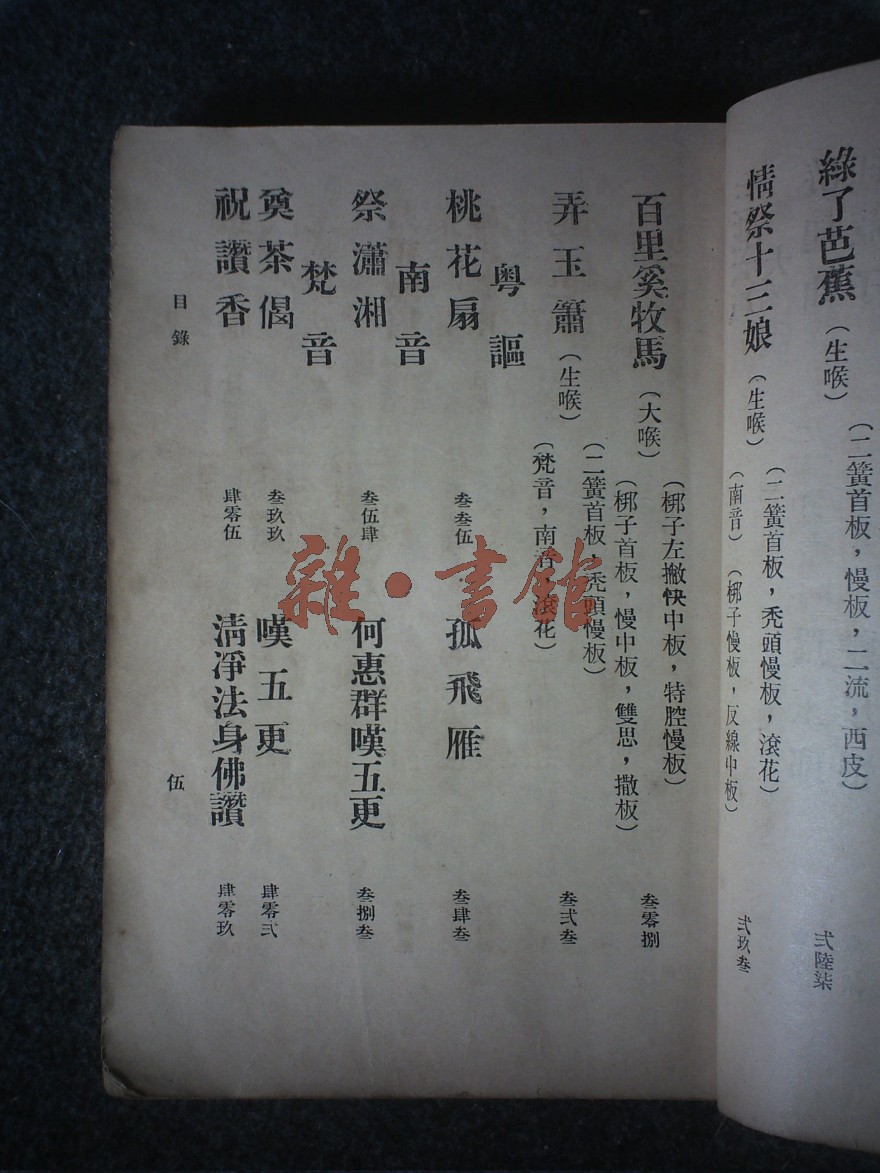 綠了芭蕉（生喉）
（二簧首板，慢板，二流，西皮）
弍陸柒
情祭十三娘（生喉）
（二簧首板，禿頭慢板，滾花）
（南音）（梆子慢板，反線中板）
弍玖叁
百里奚牧馬（大喉）
（梆子左撇快中板，特腔慢板）
（梆子首板，慢中板，雙思，撒板）
叁零捌
弄玉簫（生喉）
（二簧首板，禿頭慢板）
（梵音，南音，滾花）
叁弍叁
粵謳
桃花扇 叁叁伍
孤飛雁 叁肆叁
南音
祭瀟湘 叁伍肆
何惠群嘆五更 叁捌叁
梵音
奠茶偈 叁玖玖
嘆五更 肆零弍
祝讚香 肆零伍
清淨法身佛讚 肆零玖
目錄
伍
雜·書館